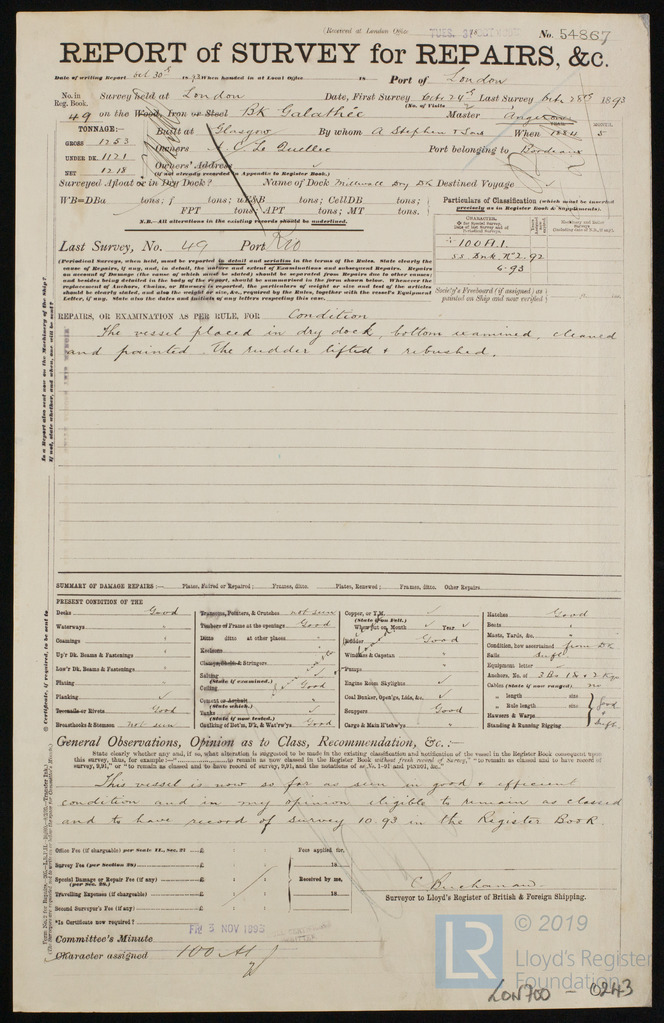 (Received at London Office TUES. 31 OCT
No. 54867
REPORT of SURVEY for REPAIRS, &c.
Date of writing Report Oct 30th 1893 When handed in at Local Office 18 Port of London
No. in Reg. Book. Survey held at London Date, First Survey Octr 24th Last Survey Octr 28th 1893
(No. of Visits 2)
49 on the Wood, Iron or Steel Bk Galathée Master
TONNAGE:— Built at Glasgow By whom A Stephen & Sons When 1884 5
YEAR. MONTH.
GROSS 1253 Owners A. C. Le Quellec Port belonging to Bordeaux
UNDER DK. 1121 Owners' Address ✓
NET 1218 (if not already recorded in Appendix to Register Book.)
Surveyed Afloat or in Dry Dock? Name of Dock Millwall Dry Dk Destined Voyage ✓
WB=DBa tons; f tons; uE&B tons; CellDB tons;
FPT tons; APT tons; MT tons.
N.B.—All alterations in the existing records should be underlined.
Particulars of Classification (which must be inserted precisely as in Register Book & Supplements).
CHARACTER.
100 A1.
SS Dnk No 2. 92
6.93
Society's Freeboard (if assigned) as painted on Ship and now verified
Last Survey, No. 49 Port Rio
(Periodical Surveys, when held, must be reported in detail and seriatim in the terms of the Rules. State clearly the
cause of Repairs, if any, and, in detail, the nature and extent of Examinations and subsequent Repairs. Repairs
on account of Damage (the cause of which must be stated) should be reported from Repairs due to other causes;
and besides being detailed in the body of the report, should be summarized in the form shewn below. Whenever the
replacement of Anchors, Chains, or Hawsers is reported, the particulars of weight or size and test of the articles
should be clearly stated, and also the weight or size, &c., required by the Rules, together with the vessel's Equipment
Letter, if any. State also the dates and initials of any letters respecting this case.
REPAIRS, OR EXAMINATION AS PER RULE, FOR Condition
The vessel placed in dry dock, bottom examined, cleaned
and painted. The rudder lifted & rebushed.
Is a Report also sent now on the Machinery of the Ship?
If not, state whether, and when, one will be sent?
SUMMARY OF DAMAGE REPAIRS:— Plates, Faired or Repaired; Frames, ditto. Plates, Renewed; Frames, ditto. Other Repairs
PRESENT CONDITION OF THE
Decks Good
Waterways "
Coamings "
Up'r Dk. Beams & Fastenings "
Low'r Dk. Beams & Fastenings "
Plating "
Planking ✓
Treenails or Rivets Good
Breasthooks & Stemson not seen
Transoms, Pointers, & Crutches not seen
Timbers of Frame at the openings Good
Ditto ditto at other places "
Keelsons "
Clamps, Shelfs & Stringers "
Salting ✓
(State if examined.)
Ceiling Good
Cement or Asphalt
(State which.)
Tanks
(State if now tested.)
Caulking of Dot'm, D'k, & Wat'w'ys Good
Copper, or Y.M. ✓
(State if on Felt.)
When put on, Month ✓ Year ✓
Rudder Good
Windlass & Capstan "
Pumps "
Engine Room Skylights ✓
Coal Bunker, Open'gs, Lids, &c. ✓
Scuppers Good
Cargo & Main H'tchw'ys "
Hatches Good
Boats "
Masts, Yards, &c. "
Condition, how ascertained from Dk
Sails Sufft
Equipment letter ✓
Anchors, No. of 3 Bo 1 St & 2 Kge
Cables (State if now ranged) no
" length size
" Rule length size Good
Hawsers & Warps
Standing & Running Rigging Suffts
General Observations, Opinion as to Class, Recommendation, &c.:—
State clearly whether any and, if so, what alteration is suggested to be made in the existing classification and notification of the vessel in the Register Book consequent upon
This vessel is now so far as seen in good & efficient
condition and in my opinion eligible to remain as classed
and to have record of Survey 10.93 in the Register Book.
Office Fee (if chargeable) per Scale II., Sec. 21 £ : : Fees applied for,
Survey Fee (per Section 28) £ : : 18
Special Damage or Repair Fee (if any) £ : : Received by me,
(per Sec. 28.)
Travelling Expenses (if chargeable) £ : : 18
Second Surveyor's Fee (if any) £ : :
*Is Certificate now required?
C. Buchanan
Surveyor to Lloyd's Register of British & Foreign Shipping.
Committee's Minute FRI 3 NOV 1893
Character assigned 100 A1
© 2019
LR
Lloyd's Register
Foundation
LON700 - 0243